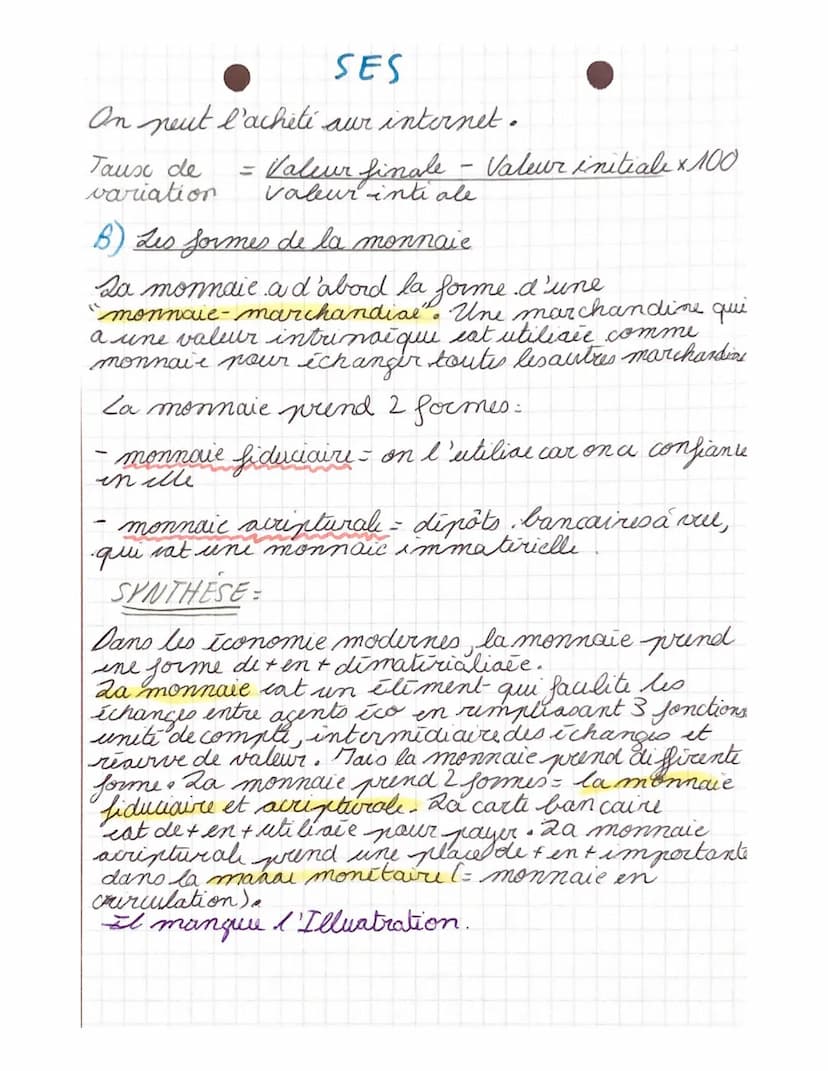 SES
On peut l'acheté sur internet.
Taux de = Valeur finale - Valeur initiale x 100
variation valeur intiale
B) Les formes de la monnaie
La monnaie a d'abord la forme d'une
"monnaie-marchandise". Une marchandise qui
a une valeur intrinsèque est utilisée comme
monnaie pour échanger toutes les autres marchandise
La monnaie prend 2 formes :
- monnaie fiduciaire = on l'utilise car on a confiance
en elle
- monnaie scripturale = dépôts bancaires à vue,
qui est une monnaie immatérielle.
SYNTHÉSE =
Dans les économie modernes, la monnaie prend
une forme de + en + dématérialisée.
La monnaie est un élément qui facilite les
échanges entre agents éco en remplissant 3 fonctions
unité de compte, intermédiaire des échanges et
réserve de valeur. Mais la monnaie prend différente
forme. La monnaie prend 2 formes = la monnaie
fiduciaire et scripturale. La carte bancaire
est de + en + utilisée pour payer. La monnaie
scripturale prend une place de + en + importante
dans la masse monétaire (= monnaie en
circulation).
Il manque l'Illustration.